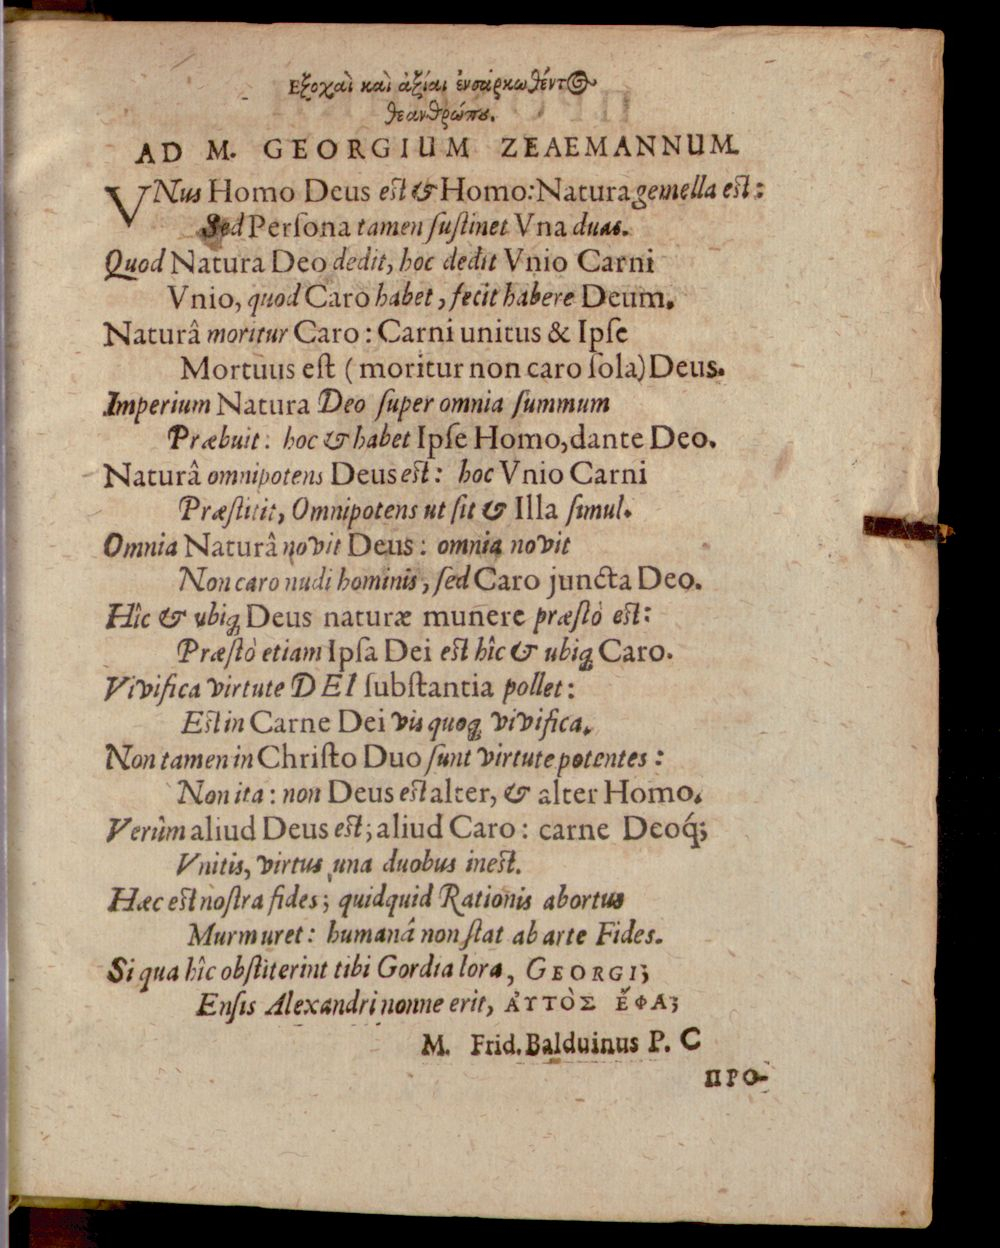 Εξοχαὶ καὶ ἀξίαι ἐνσαρκωθέντος
θεανθρώπου.
AD M. GEORGIUM ZEAEMANNUM.
VNus Homo Deus est & Homo: Natura gemella est:
Sed Perſona tamen ſuſtinet Vna duas.
Quod Natura Deo dedit, hoc dedit Vnio Carni
Vnio, quod Caro habet, fecit habere Deum.
Naturâ moritur Caro: Carni unitus & Ipſe
Mortuus eſt (moritur non caro ſola) Deus.
Imperium Natura Deo ſuper omnia ſummum
Præbuit: hoc & habet Ipſe Homo, dante Deo.
Naturâ omnipotens Deus est: hoc Vnio Carni
Præſtitit, Omnipotens ut ſit & Illa ſimul.
Omnia Naturâ novit Deus: omnia novit
Non caro nudi hominis, ſed Caro juncta Deo.
Hîc & ubiq; Deus naturæ munere præſtò est:
Præſtò etiam Ipſa Dei est hîc & ubiq; Caro.
Vivifica virtute DEI ſubſtantia pollet:
Est in Carne Dei vis quoq; vivifica.
Non tamen in Chriſto Duo ſunt virtute potentes:
Non ita: non Deus est alter, & alter Homo.
Verùm aliud Deus est; aliud Caro: carne Deoq́;
Vnitis, virtus una duobus inest.
Hæc est noſtra fides; quidquid Rationis abortus
Murmuret: humanâ non ſtat ab arte Fides.
Si qua hîc obſtiterint tibi Gordia lora, GEORGI;
Enſis Alexandri nonne erit, ἈΥΤῸΣ ἜΦΑ;
M. Frid. Balduinus P. C
ΠΡΟ-